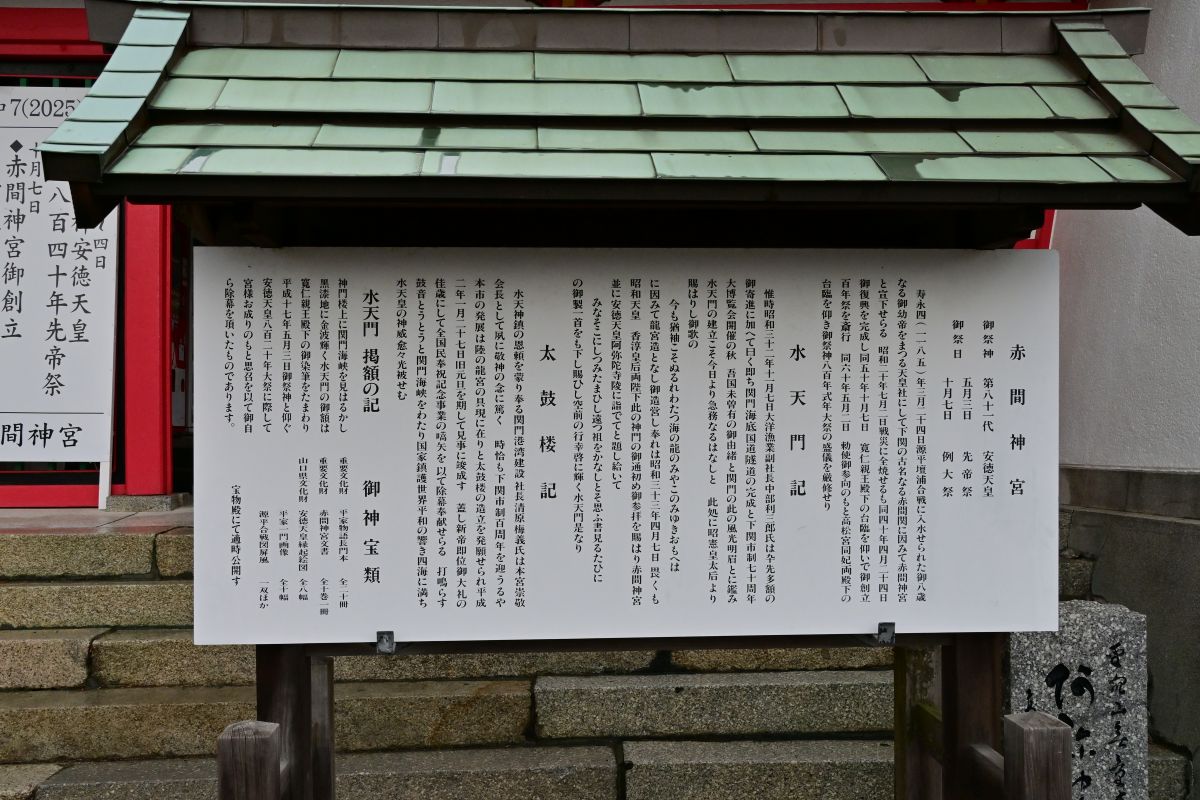 赤間神宮
御祭神　第八十一代　安徳天皇
御祭日　五月三日　先帝祭
十月七日　例大祭
寿永四(一一八五)年三月二十四日源平壇浦合戦に入水せられた御八歳
なる御幼帝をまつる天皇社にして下関の古名なる赤間関に因みて赤間神宮
と宣下せらる　昭和二十年七月二日戦災に全焼せるも同四十年四月二十四日
御復興を完成し同五十年十月七日　寛仁親王殿下の台臨を仰いで御創立
百年祭を斎行　同六十年五月二日　勅使御参向のもと高松宮同妃両殿下の
台臨を仰き御祭神八百年式年大祭の盛儀を厳修せり
水天門記
惟時昭和三十二年十一月七日大洋漁業副社長中部利三郎氏は卆先多額の
御寄進に加へて曰く即ち関門海底国道隧道の完成と下関市制七十周年
大博覧会開催の秋　吾国未曽有の御由緒と関門の此の風光明眉とに鑑み
水天門の建立こそ今日より急務なるはなしと　此処に昭憲皇太后より
賜はりし御歌の
今も猶袖こそぬるれわたつ海の龍のみやこのみゆきおもへは
に因みて龍宮造となし御造営し奉れは昭和三十三年四月七日　畏くも
昭和天皇　香淳皇后両陛下此の神門の御通初め御参拝を賜はり赤間神宮
並に安徳天皇阿弥陀寺陵に詣でてと題し給いて
みなそこにしつみたまひし遠つ祖をかなしとそ思ふ書見るたひに
の御製一首をも下し賜ひし空前の行幸啓に輝く水天門是なり
太鼓楼記
水天神鎮の恩頼を蒙り奉る関門港湾建設　社長清原梅義氏は本宮崇敬
会長として夙に敬神の念に篤く　時恰も下関市制百周年を迎うるや
本市の発展は陸の龍宮の具現に在りと太鼓楼の造立を発願せられ平成
二年一月二十七日旧元旦を期して見事に竣成す　蓋し新帝即位御大礼の
佳歳にして全国民奉祝記念事業の嚆矢を以て除幕奉献せらる　打鳴らす
鼓音とうとうと関門海峡をわたり国家鎮護世界平和の響き四海に満ち
水天皇の神威愈々光被せむ
水天門　掲額の記
神門楼上に関門海峡を見はるかし
黒漆地に金波輝く水天門の御額は
寛仁親王殿下の御染筆をたまわり
平成十七年五月三日御祭神と仰ぐ
安徳天皇八百二十年大祭に際して
宮様お成りのもと思召を以て御自
ら除幕を頂いたものであります。
御神宝類
重要文化財　平家物語長門本　全二十冊
重要文化財　赤間神宮文書　全十巻一冊
山口県文化財　安徳天皇縁起絵図　全八幅
平家一門画像　全十幅
源平合戦図屏風　一双ほか
宝物殿にて適時公開す
7(2025)
四日
安徳天皇
八百四十年先帝祭
十月七日
◆赤間神宮御創立
間神宮